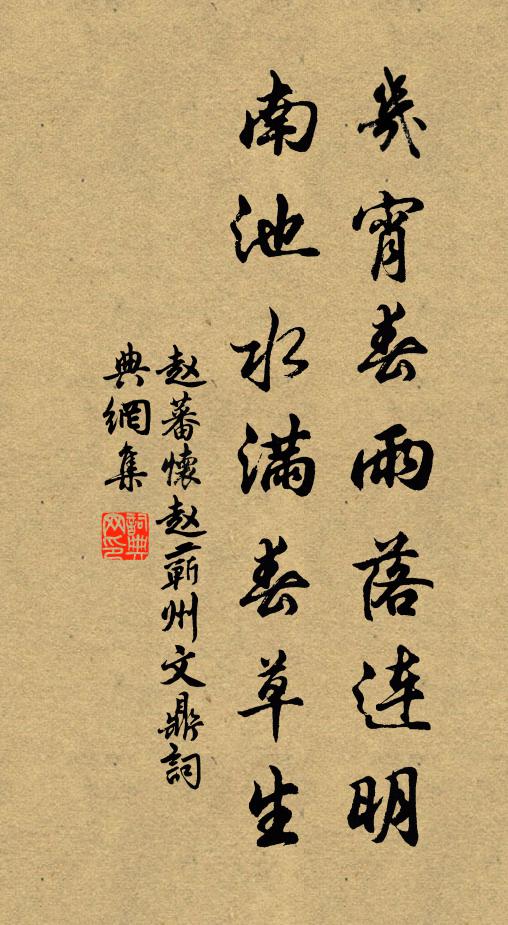 幾宵春雨落連明
南池水滿春草生
赵蕃懷赵蘄州文鼎詞
典網集
詞典
网印